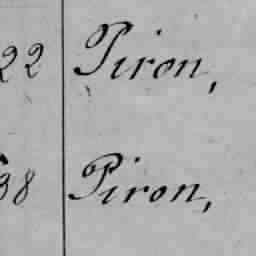 22 Piron,
38 Piron,